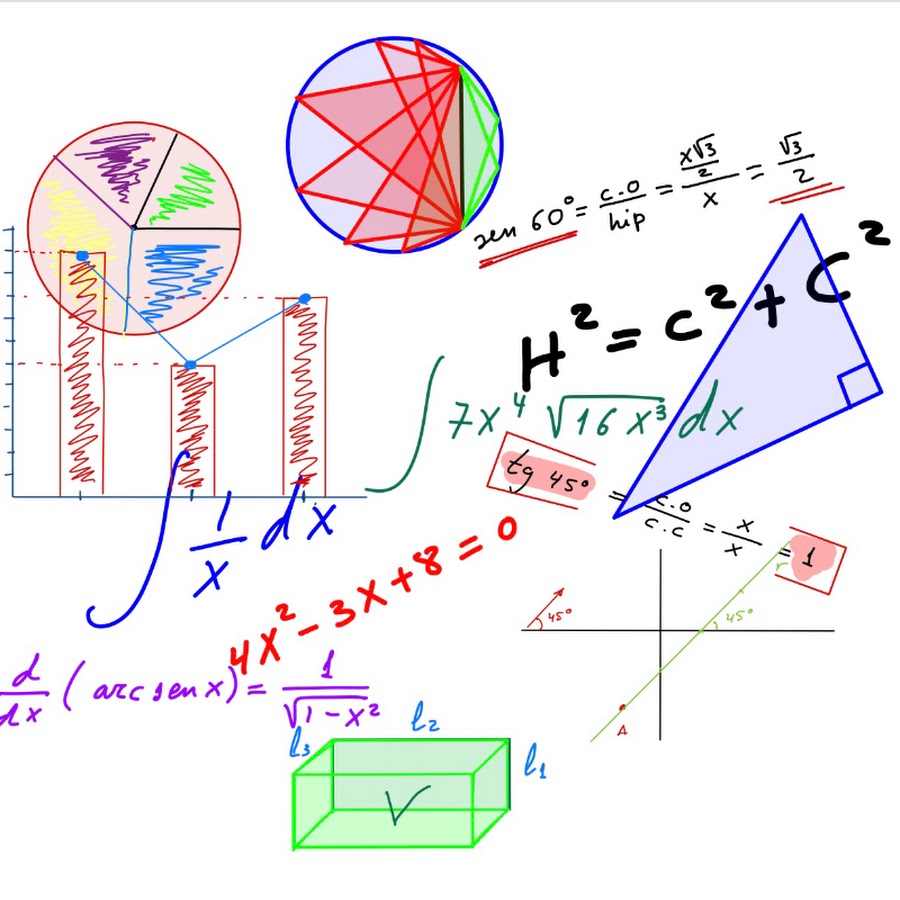 sen 60° = c.o/hip = (x√3/2)/x = √3/2
H² = c² + C²
∫ 7x⁴ √16x³ dx
tg 45° = c.o/c.c = x/x = 1
∫ 1/x dx
4x² - 3x + 8 = 0
45°
45°
r
A
d/dx (arc sen x) = 1/√1-x²
l₃
l₂
l₁
V